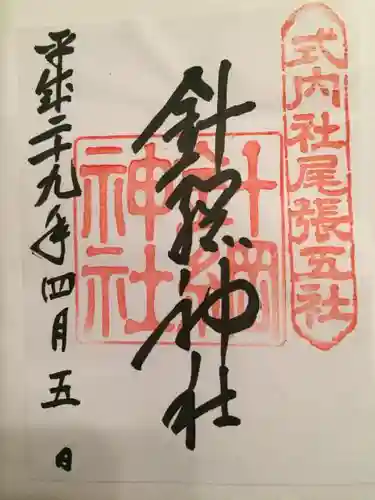 式内社尾張五社
針綱神社
針綱神社
平成二十九年四月五日